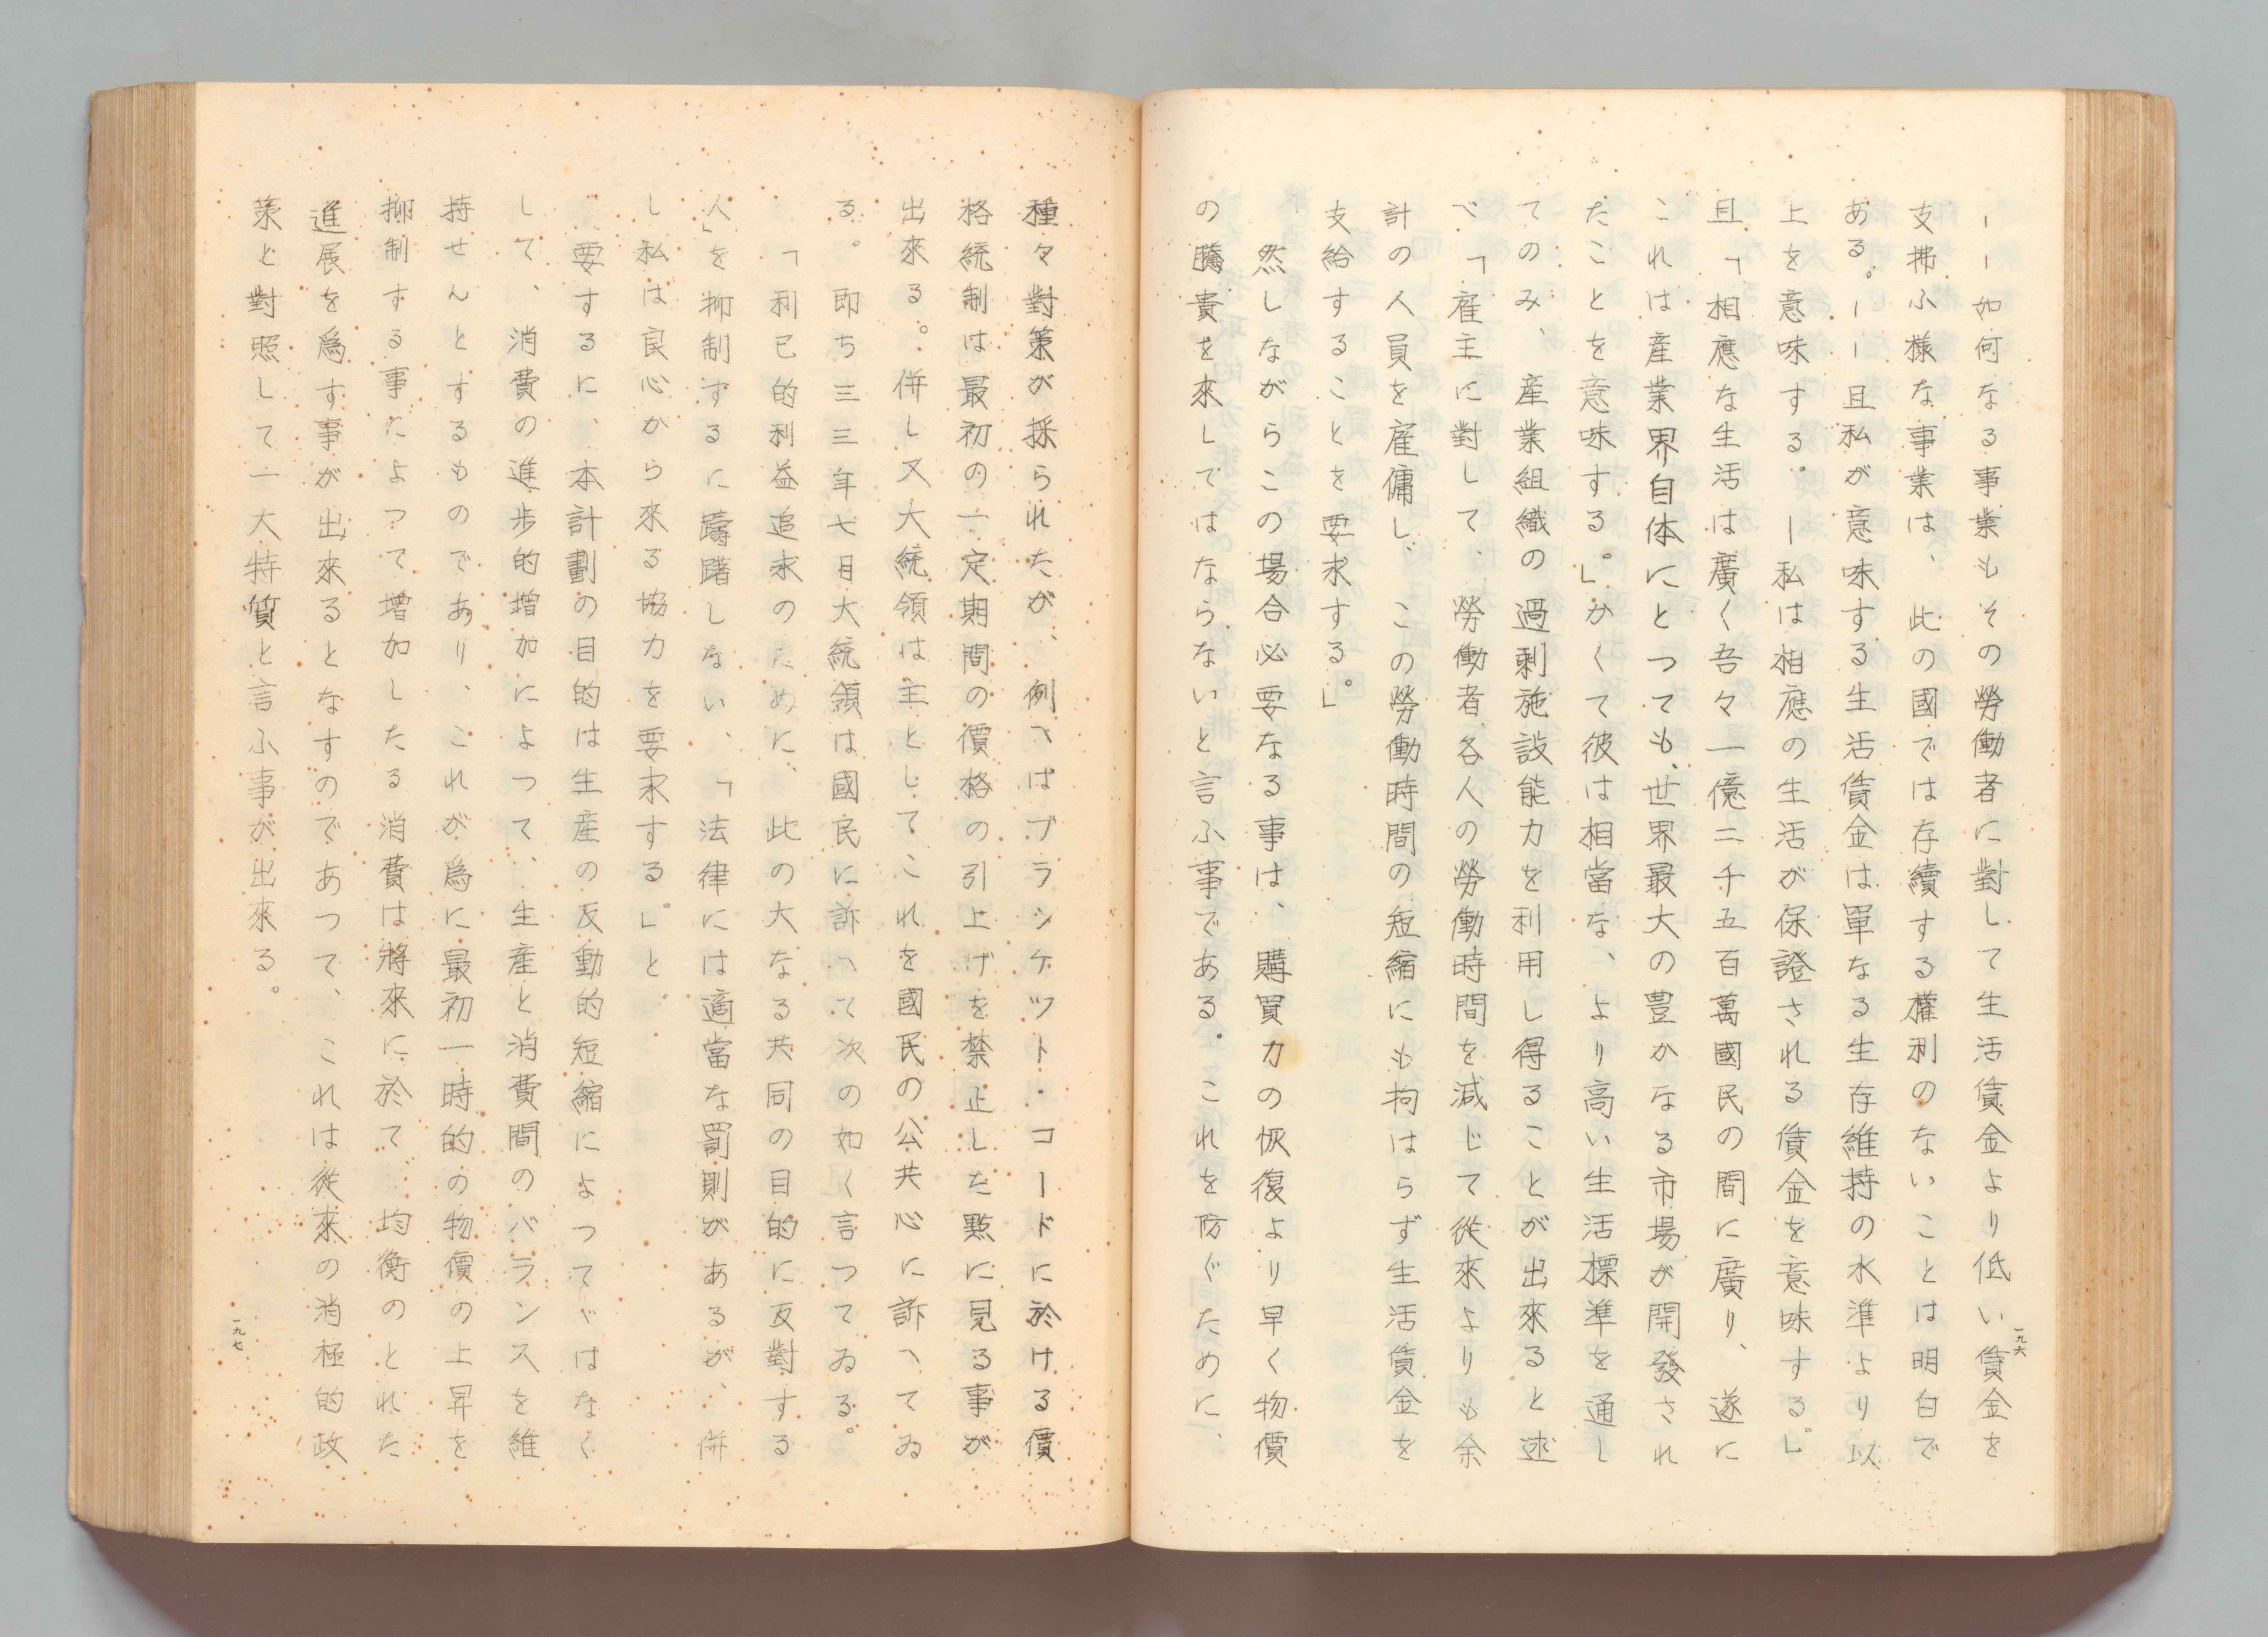 ――如何なる事業もその勞働者に對して生活賃金より低い賃金を
支拂ふ樣な事業は、此の國では存續する權利のないことは明白で
ある。――且私が意味する生活賃金は單なる生存維持の水準より以
上を意味する。―私は相應の生活が保證される賃金を意味する。」
且「相應な生活は廣く吾々一億二千五百萬國民の間に廣り、遂に
これは産業界自体にとつても、世界最大の豊かなる市場が開發され
たことを意味する。」かくて彼は相當な、より高い生活標準を通し
てのみ、産業組織の過剰施設能力を利用し得ることが出來ると述
べ「雇主に對して、勞働者各人の勞働時間を減じて從來よりも余
計の人員を雇傭し、この勞働時間の短縮にも拘はらず生活賃金を
支給することを要求する。」
然しながらこの場合必要なる事は、購買力の恢復より早く物價
の騰貴を來してはならないと言ふ事である。これを防ぐために、
一九六
種々對策が採られたが、例へばブランケツト・コードに於ける價
格統制は最初の一定期間の價格の引上げを禁止した點に見る事が
出來る。併し又大統領は主としてこれを國民の公共心に訴へてゐ
る。即ち三三年七月大統領は國民に訴へて次の如く言つてゐる。
「利己的利益追求のために、此の大なる共同の目的に反對する
人」を抑制するに躊躇しない、「法律には適當な罰則があるが、併
し私は良心から來る協力を要求する。」と。
要するに、本計劃の目的は生産の反動的短縮によつてではなく
して、消費の進歩的増加によつて、生産と消費間のバランスを維
持せんとするものであり、これが爲に最初一時的の物價の上昇を
抑制する事によつて増加したる消費は將來に於て均衡のとれた
進展を爲す事が出來るとなすのであつて、これは從來の消極的政
策と對照して一大特質と言ふ事が出來る。
一九七